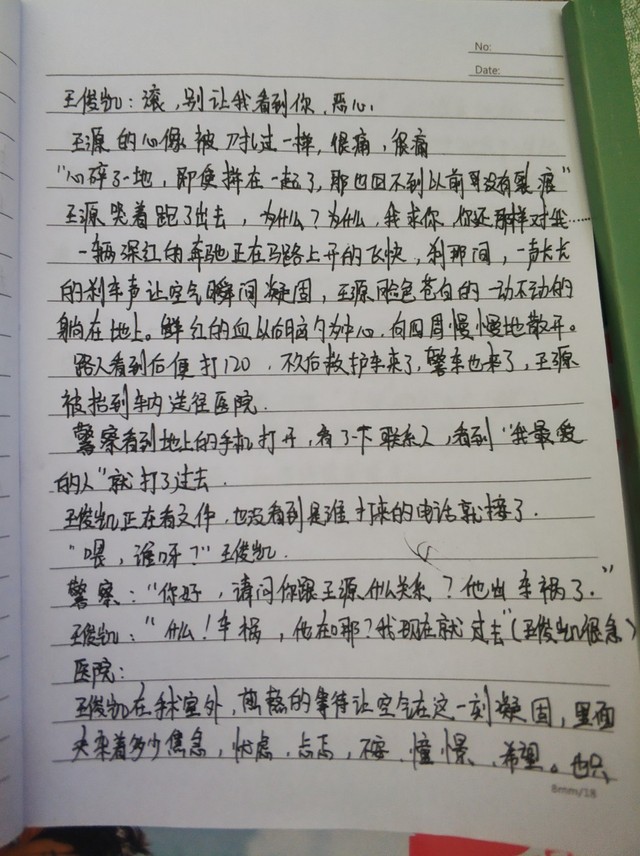 No:
Date:
王俊凯：滚，别让我看到你，恶心
王源的心像被刀扎过一样，很痛，很痛
"心碎了一地，即使拼在一起了，那也回不到以前哥没有裂痕"
王源哭着跑了出去，为什么？为什么，我求你，你还那样对我……
一辆深红的奔驰正在马路上开的飞快，刹那间，一声长长
的刹车声让空气瞬间凝固，王源脸色苍白的一动不动的
躺在地上。鲜红的血以后脑勺为中心，向四周慢慢地散开。
路人看到后便打120，不久后救护车来了，警车也来了，王源
被抬到车内送往医院.
警察看到地上的手机打开，看了一下联系人，看到"我最爱
的人"就打了过去.
王俊凯正在看文件，也没看到是谁打来的电话就接了.
"喂，谁呀？"王俊凯.
警察："你好，请问你跟王源什么关系？他出车祸了."
王俊凯："什么！车祸，他在哪？我现在就过去"(王俊凯很急)
医院：
王俊凯在手术室外，煎熬的等待让空气在这一刻凝固，里面
夹杂着多少焦急，忧虑，忐忑，不安，憧憬，希望。也只
8mm/18